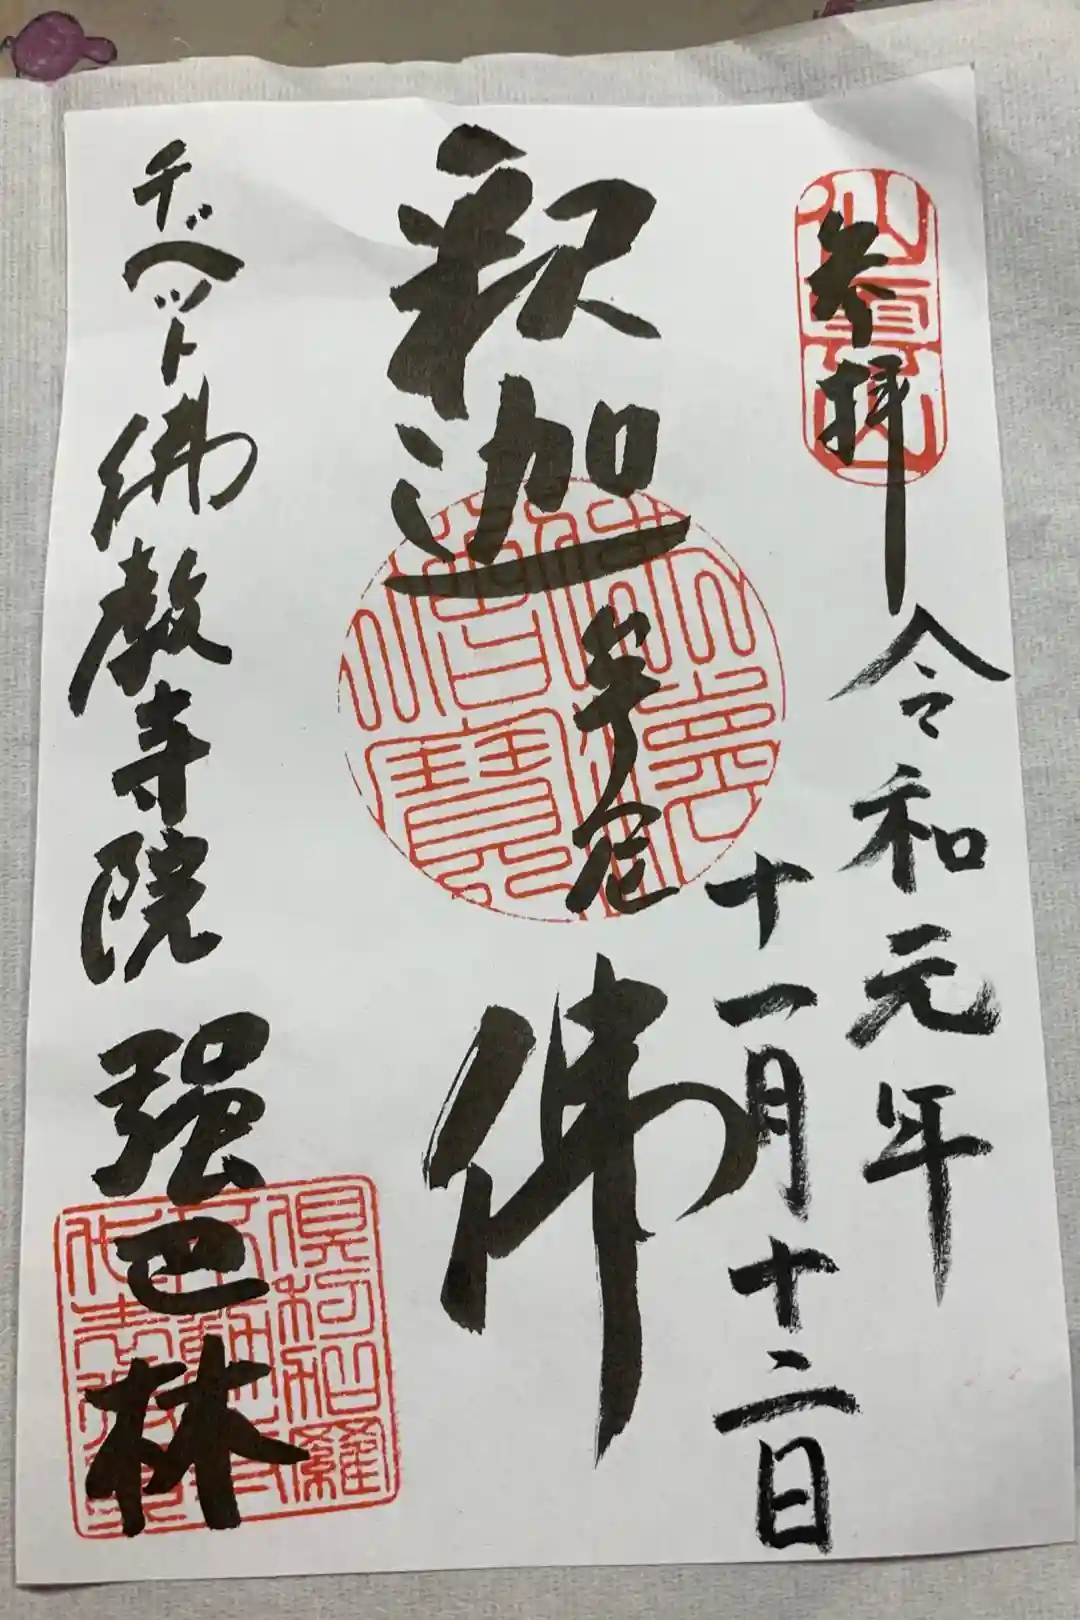 参拝
令和元年
十一月十二日
釈迦牟尼
佛
チベット佛教寺院
强巴林